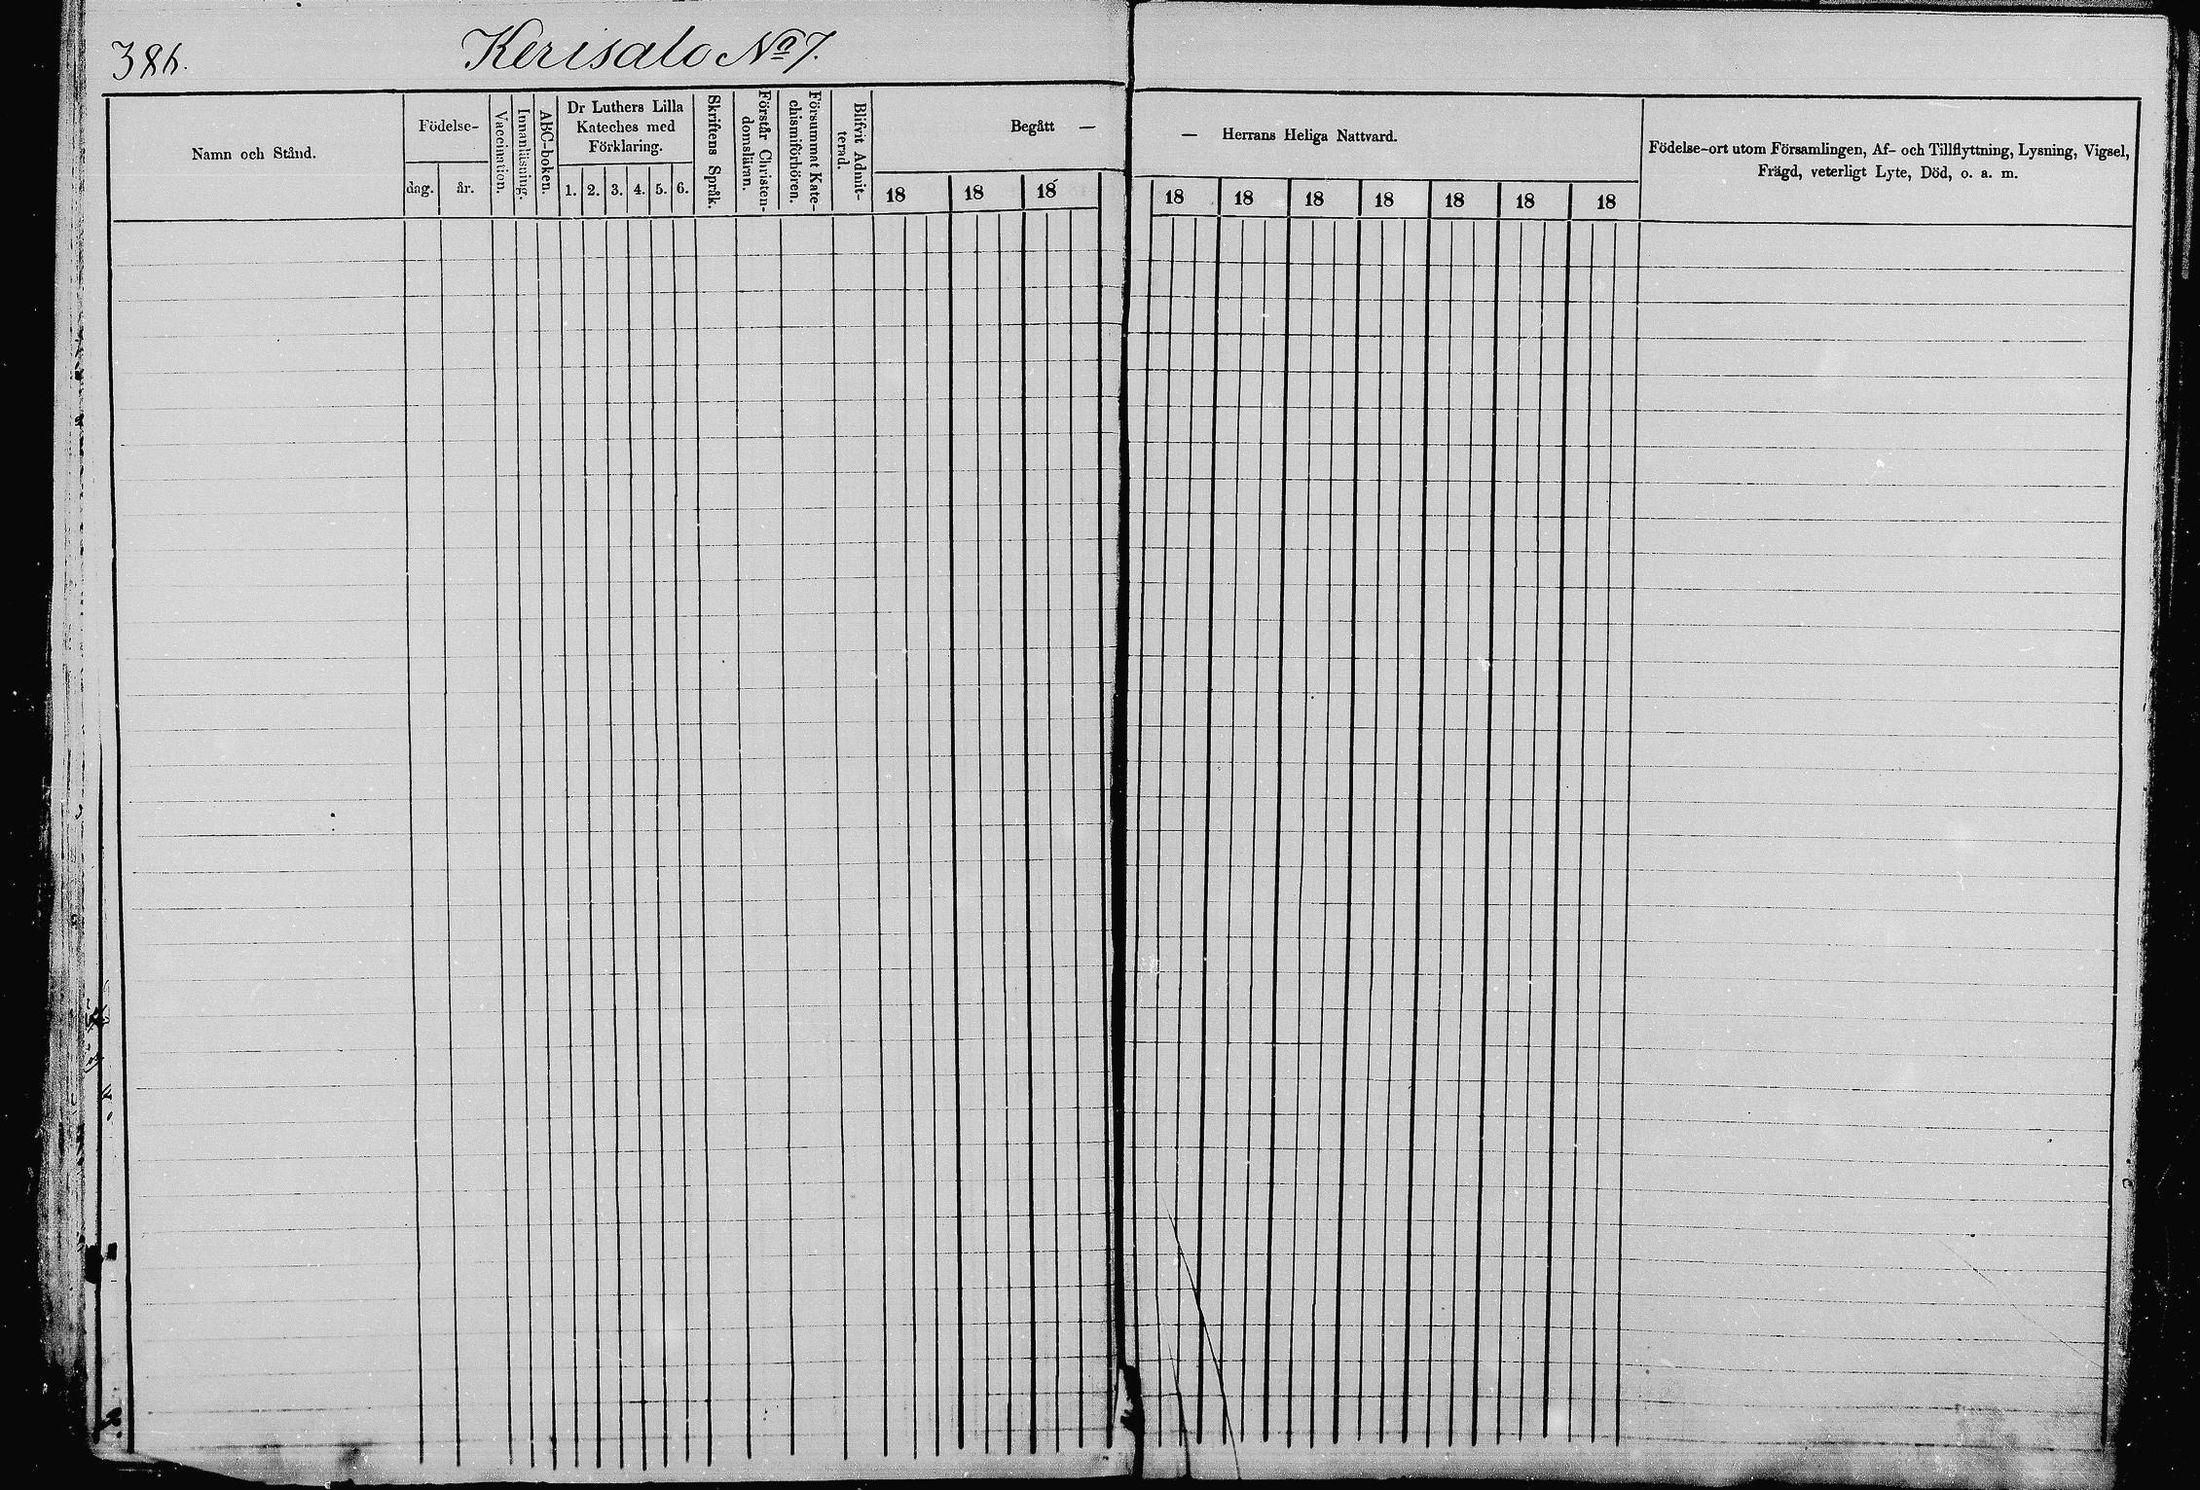 386.
Kerisalo No 7.
Namn och Stånd.
Födelse-
dag.
år.
Vaccination.
Innanläsning.
ABC-boken.
Dr Luthers Lilla
Kateches med
Förklaring.
1. 2. 3. 4. 5. 6.
Skriftens Språk.
Förstår Christen-
domsläran.
Försummat Kate-
chismiförhören.
Blifvit Admit-
terad.
Begått —
18 18 18
— Herrans Heliga Nattvard.
18 18 18 18 18 18 18
Födelse-ort utom Församlingen, Af- och Tillflyttning, Lysning, Vigsel,
Frägd, veterligt Lyte, Död, o. a. m.